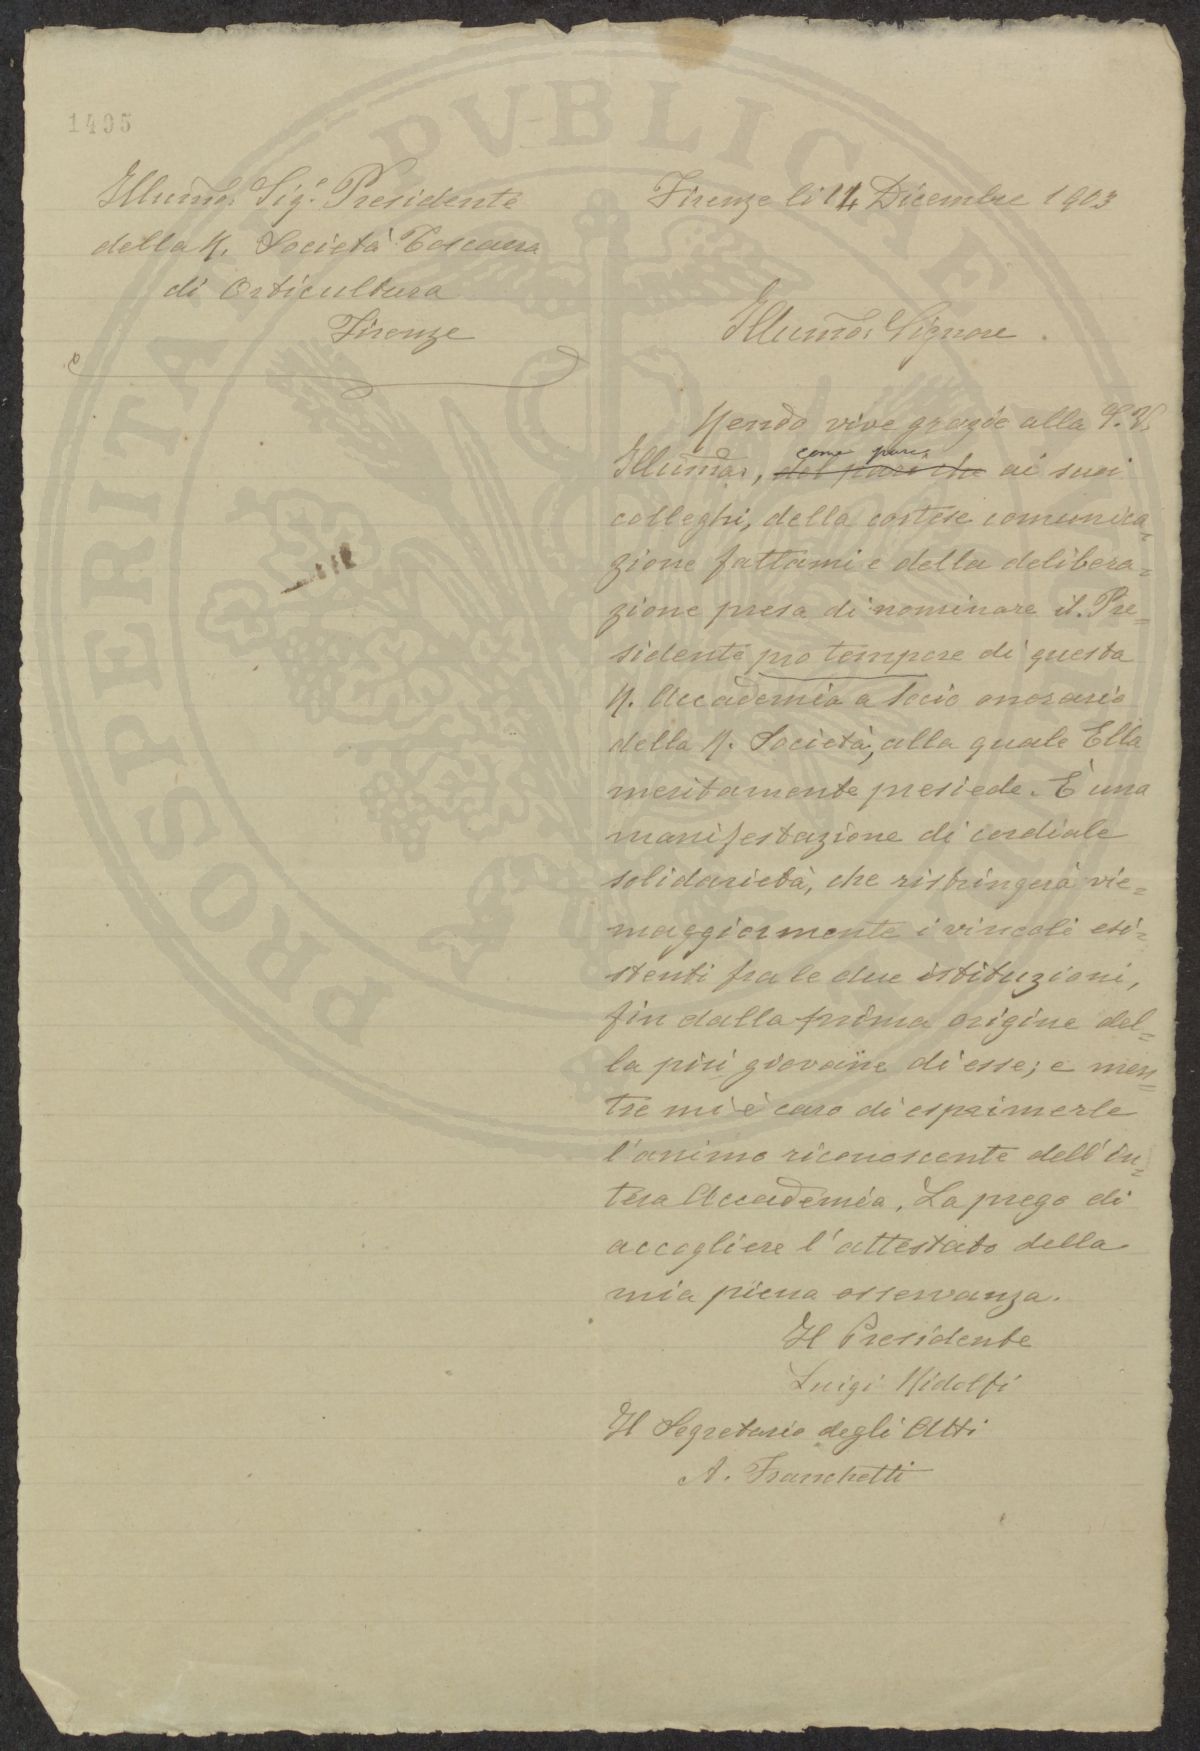 1495
Illumo. Sig.r Presidente
della R. Società Toscana
di Orticultura
Firenze
Firenze li 14 Dicembre 1903
Illumo. Signore
Rendo vive grazie alla S.V.
Illuma., come pure ai suoi
colleghi, della cortese comunica-
zione fattami e della delibera=
zione presa di nominare il Pre=
sidente pro tempore di questa
R. Accademia a socio onorario
della R. Società, alla quale Ella
meritamente presiede. È una
manifestazione di cordiale
solidarietà, che ristringerà vie=
maggiormente i vincoli esi=
stenti fra le due istituzioni,
fin dalla prima origine del=
la più giovane di esse; e men=
tre mi è caro di esprimerle
l'animo riconoscente dell'in=
tera Accademia, La prego di
accogliere l'attestato della
mia piena osservanza.
Il Presidente
Luigi Ridolfi
Il Segretario degli Atti
A. Franchetti
PROSPERITATI PVBLICAE